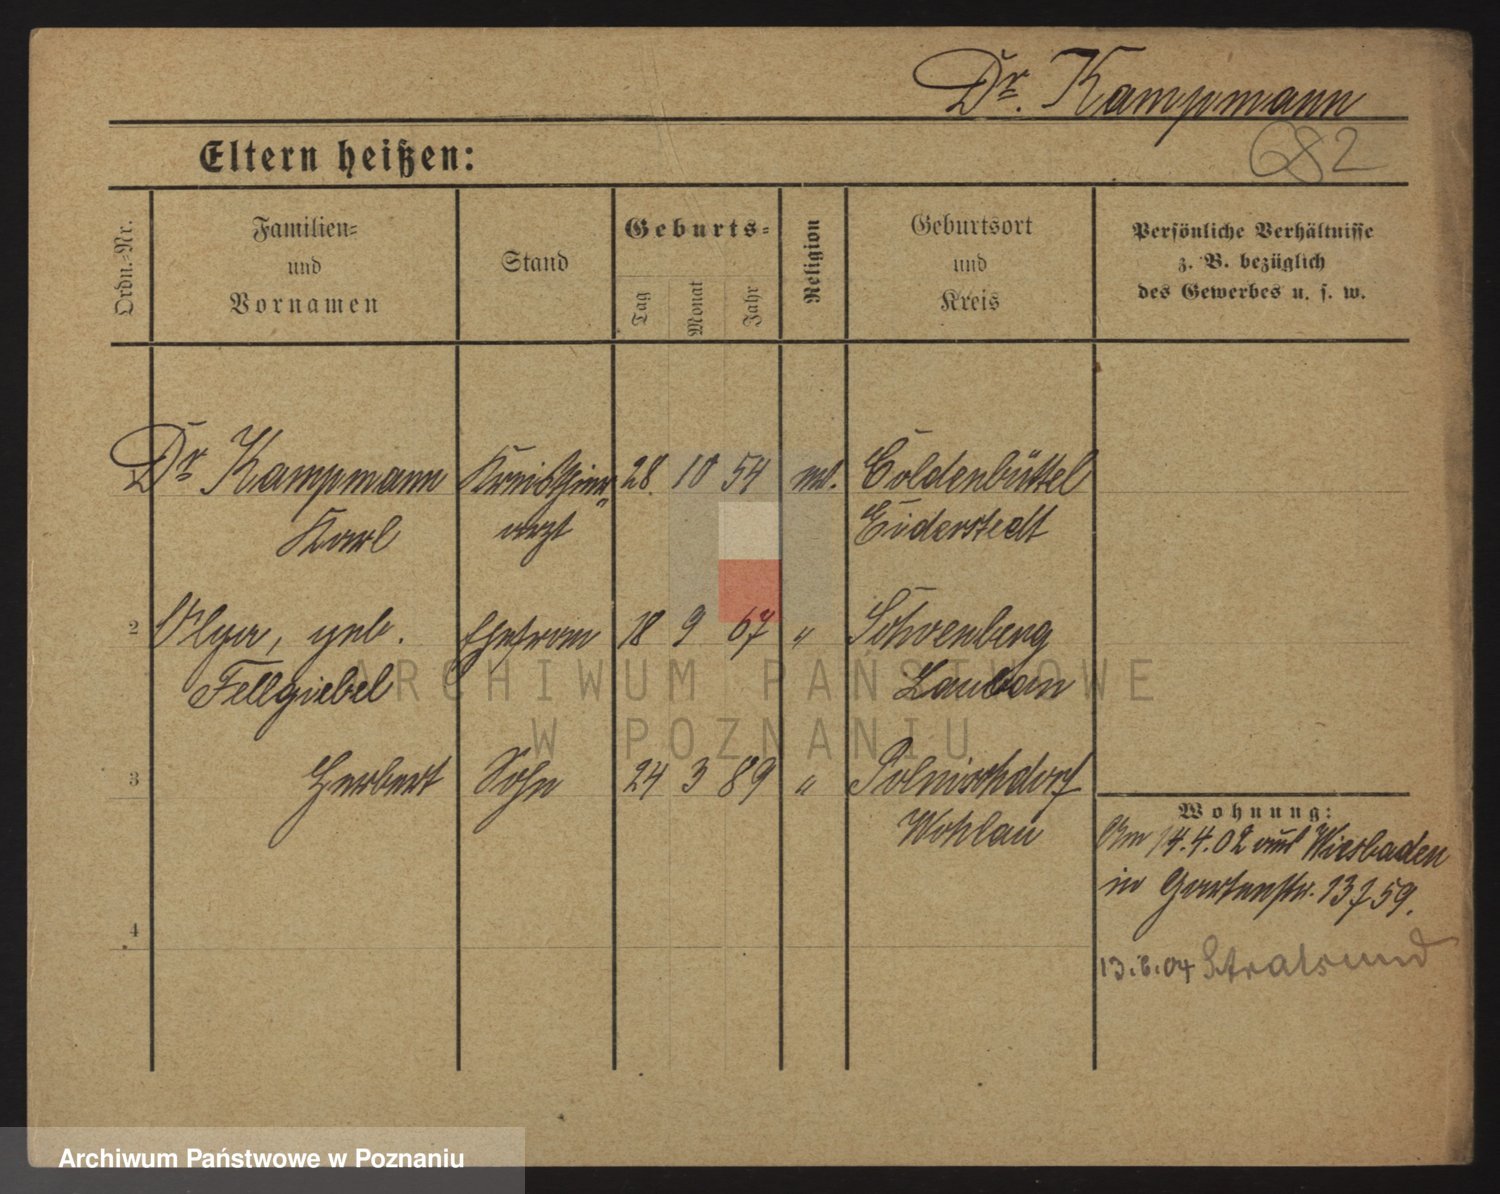 Dr. Kampmann
682
Eltern heißen:
Ordn.-Nr.
Familien-
und
Vornamen
Stand
Geburts-
Tag
Monat
Jahr
Religion
Geburtsort
und
Kreis
Persönliche Verhältnisse
z. B. bezüglich
des Gewerbes u. s. w.
Dr Kampmann Kreisthier 28. 10 54 Coldenbüttel
Karl arzt Eiderstedt
2 Olga, geb. Ehefrau 18 9 67 " Schoenberg
Fellgiebel Lauban
3 Herbert Sohn 24 3 89 " Polnischdorf
Wohlau
4
Wohnung:
Am 14.4.02 aus Wiesbaden
in Gartenstr. 13
13.6.04 Stralsund
ARCHIWUM PAŃSTWOWE
W POZNANIU
Archiwum Państwowe w Poznaniu